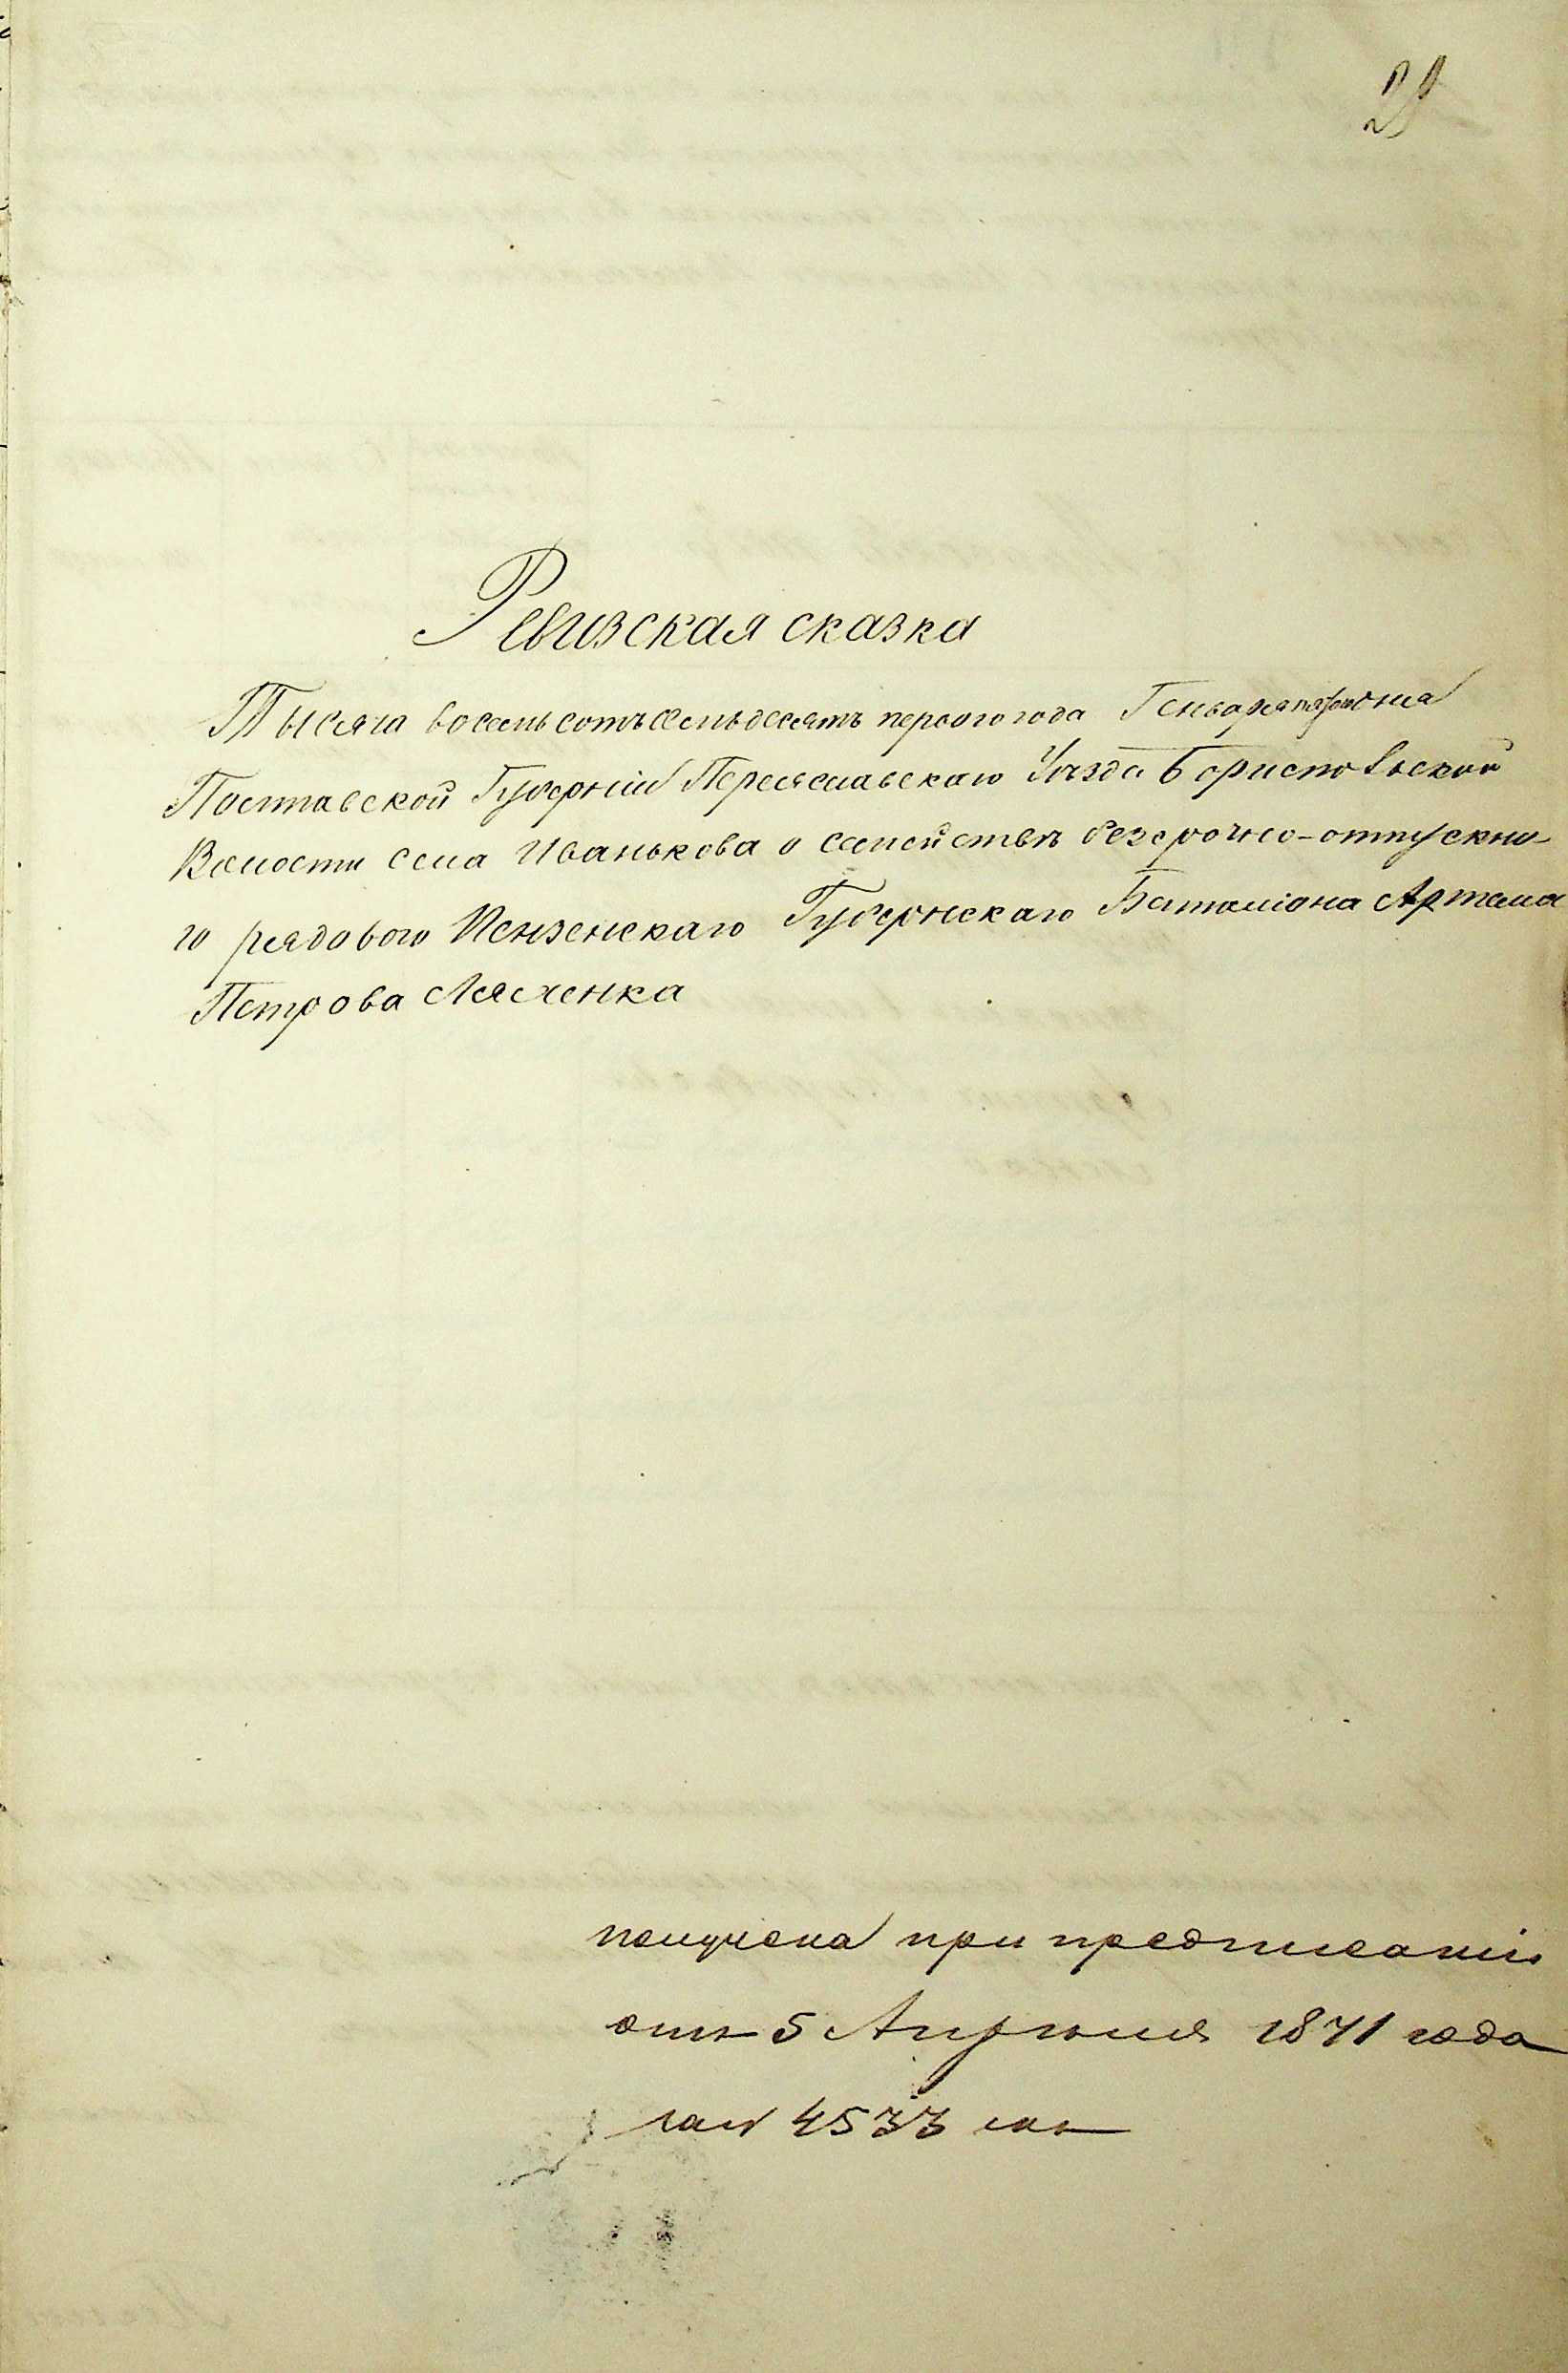 28
Ревизская сказка
Тысяча восемьсотъ семьдесятъ первого года Генваря дня
Полтавской Губерніи Переяславскаго Уѣзда Бориспольской
Волости села Иванькова о семействѣ безсрочно-отпускно-
го рядового Пензенскаго Губернскаго Баталіона Артема
Петрова Ляшенка
получена при предписаніи
отъ 5 Апрѣля 1871 года
за № 4533 мъ